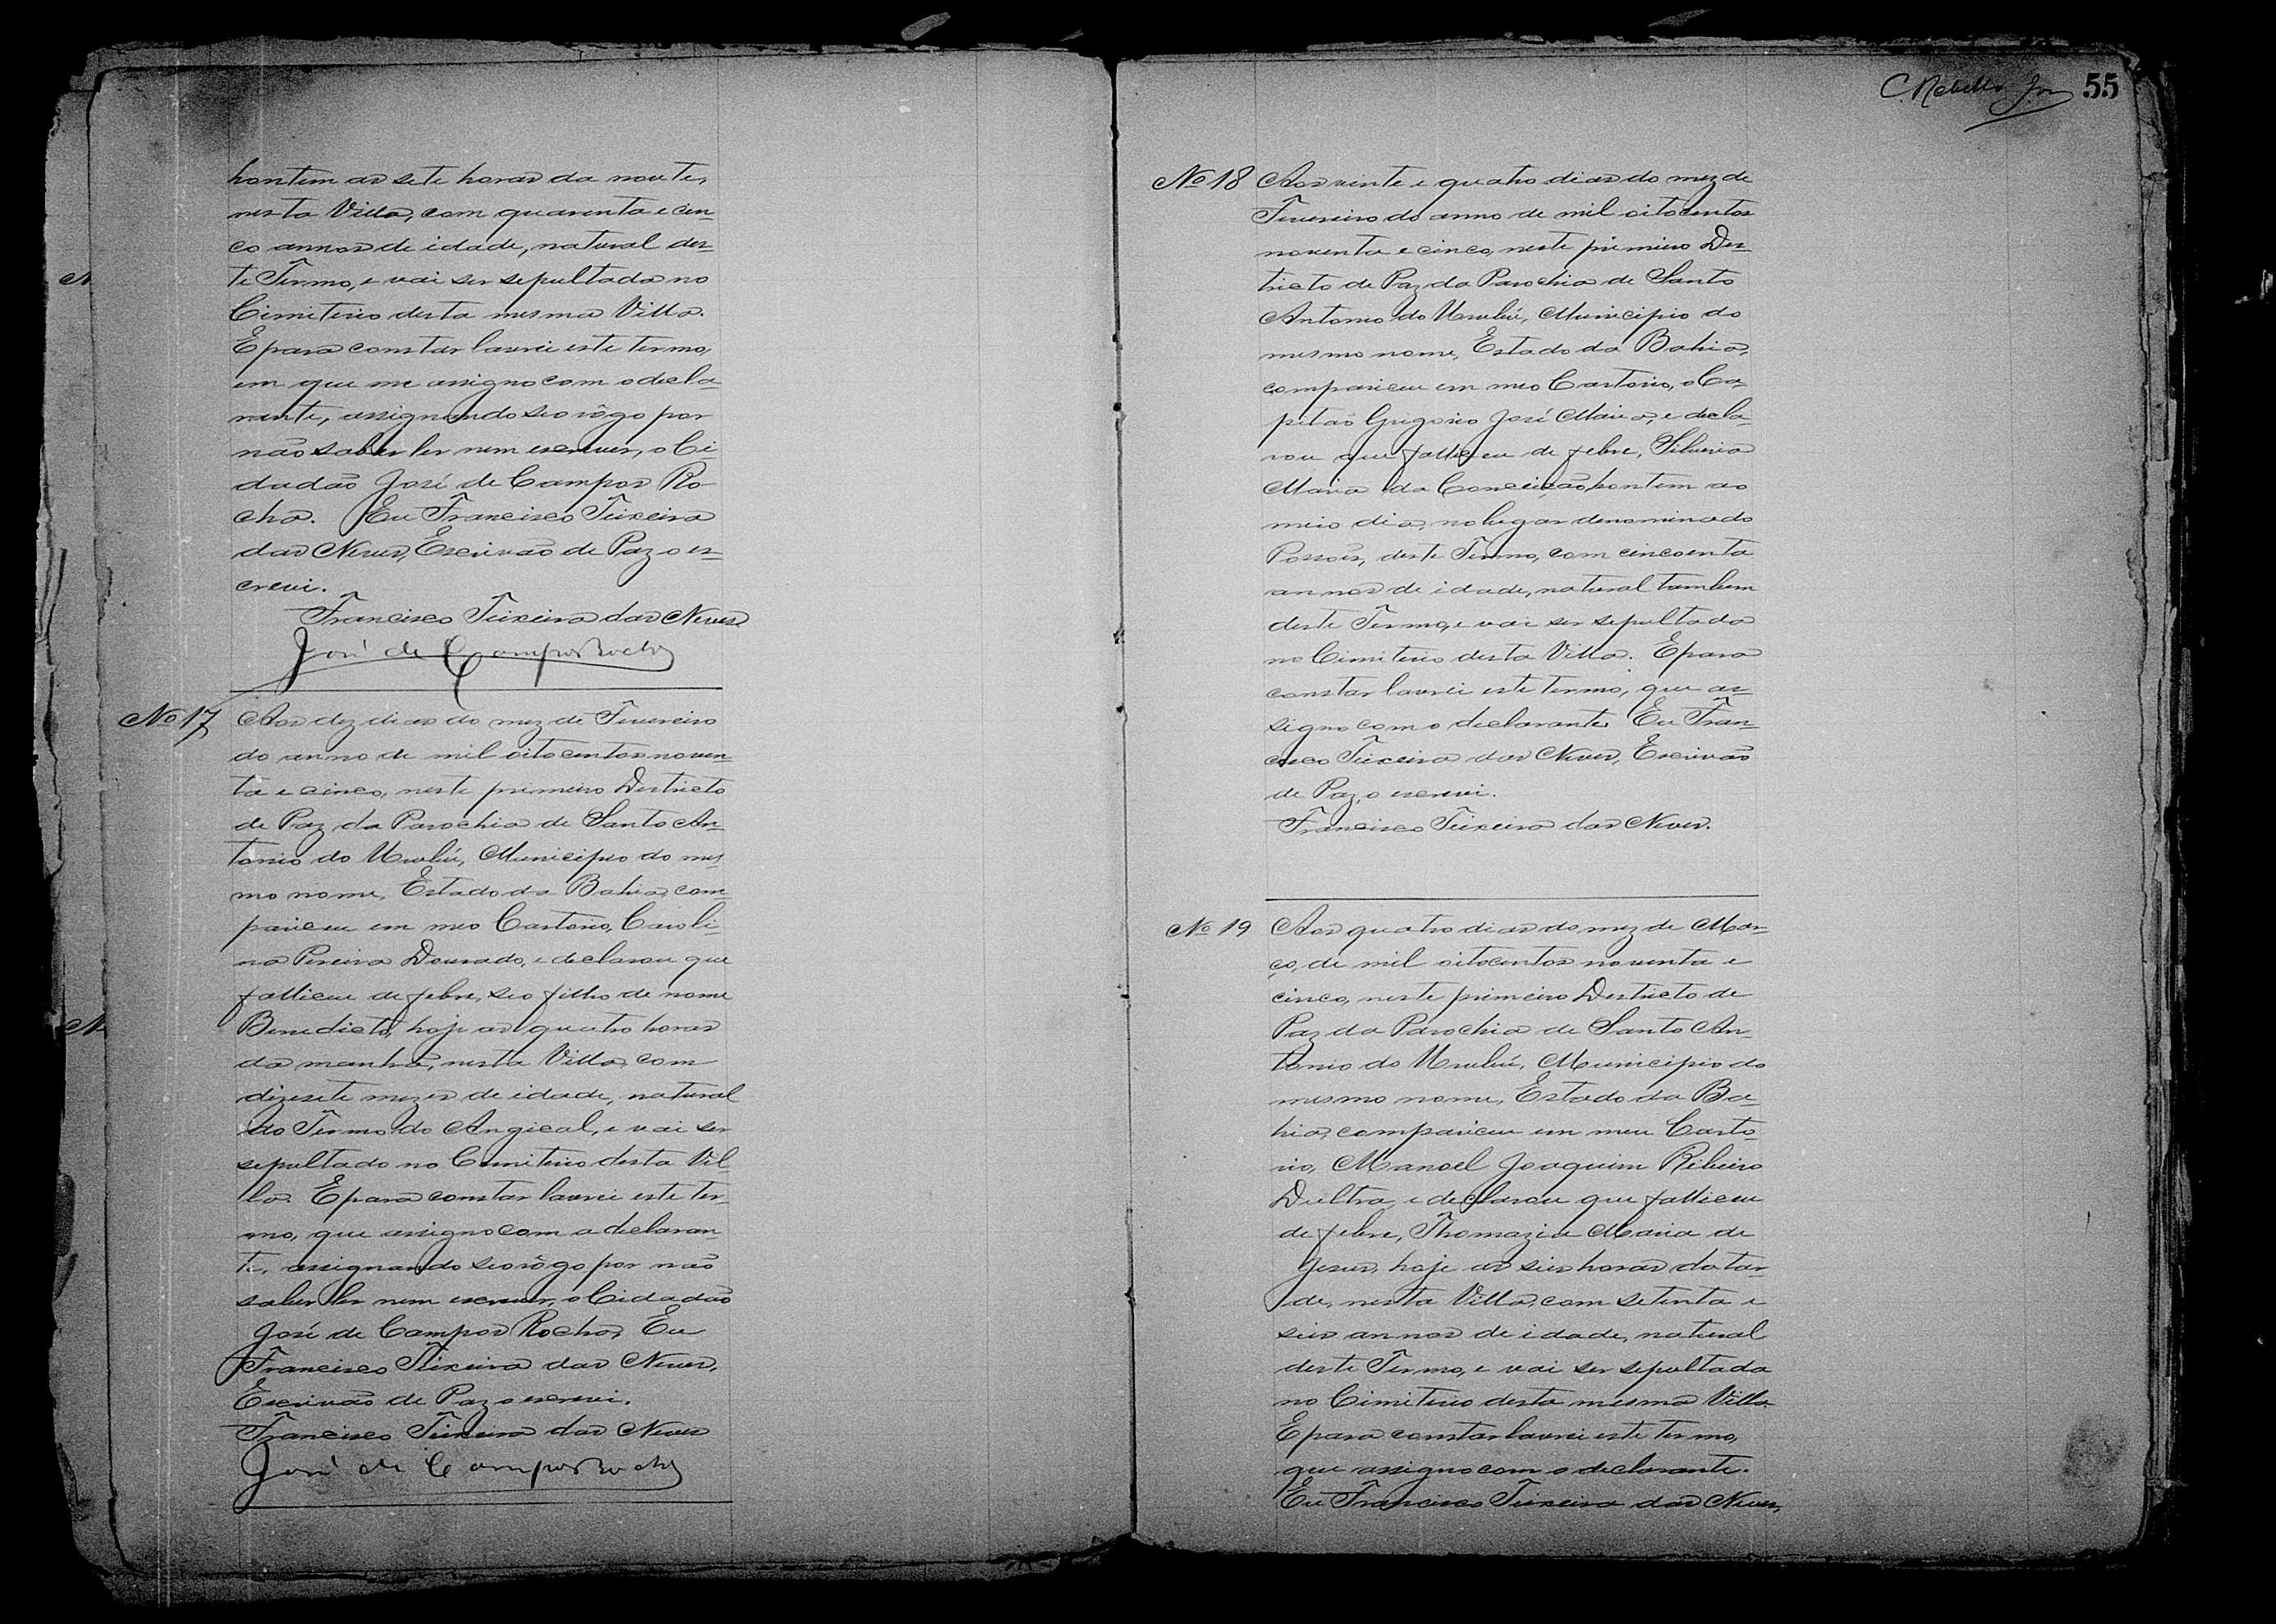 hontem as sete horas da noute,
nesta Villa, com quarenta e cin-
co annos de idade, natural des-
te Termo, e vai ser sepultada no
Cimiterio desta mesma Villa.
E para constar lavrei este termo,
em que me assigno com o decla-
rante, assignando seo rôgo por
não saber ler nem escrever, o Ci-
dadão José de Campos Ro-
cha. Eu Francisco Teixeira
das Neves, Escrivão de Paz o es-
crevi.
Francisco Teixeira das Neves
José de Campos Rocha
No 17 Aos dez dias do mez de Fevereiro
do anno de mil oitocentos noven-
ta e cinco, neste primeiro Destricto
de Paz da Parochia de Santo An-
tonio do Urubú, Municipio do mes-
mo nome, Estado da Bahia, com-
pareceu em meo Cartorio, Caroli-
na Pereira Dourado, e declarou que
falleceu de febre, seo filho de nome
Benedicto, hoje as quatro horas
da manhã, nesta Villa, com
dizesete mezes de idade, natural
do Termo do Angical, e vai ser
sepultado no Cemiterio desta Vil-
la. E para constar lavrei este ter-
mo, que assigno com a declaran
te, assignando seo rôgo por não
saber ler nem escrever, o Cidadão
José de Campos Rocha, Eu
Francisco Teixeira das Neves,
Escrivão de Paz o escrevi.
Francisco Teixeira das Neves
José de Campos Rocha
C. Rebello Jor 55
No 18 Aos vinte e quatro dias do mez de
Fevereiro do anno de mil oitocentos
noventa e cinco, neste primeiro Des-
tricto de Paz da Parochia de Santo
Antonio do Urubú, Municipio do
mesmo nome, Estado da Bahia,
compareceu em meo Cartorio, o Ca-
pitão Grigorio José Maria, e decla-
rou que falleceu de febre, Silveria
Maria da Conceição, hontem ao
meio dia, no lugar denominado
Possões, deste Termo, com cincoenta
annos de idade, natural tambem
deste Termo, e vai ser sepultada
no Cimiterio desta Villa. E para
constar lavrei este termo, que as-
signo com o declarante. Eu Fran-
cisco Teixeira das Neves, Escrivão
de Paz, o escrevi.
Francisco Teixeira das Neves.
No 19 Aos quatro dias do mez de Mar-
ço, de mil oitocentos noventa e
cinco, neste primeiro Destricto de
Paz da Parochia de Santo An-
tonio do Urubú, Municipio do
mesmo nome, Estado da Ba-
hia, compareceu em meu Carto-
rio, Manoel Joaquim Ribeiro
Dultra, e declarou que falleceu
de febre, Thomazia Maria de
Jesus, hoje as seis horas da tar-
de, nesta Villa, com setenta e
seis annos de idade, natural
deste Termo, e vai ser sepultada
no Cimiterio desta mesma Villa
E para constar lavrei este termo,
que assigno com o declarante.
Eu Francisco Teixeira das Neves,